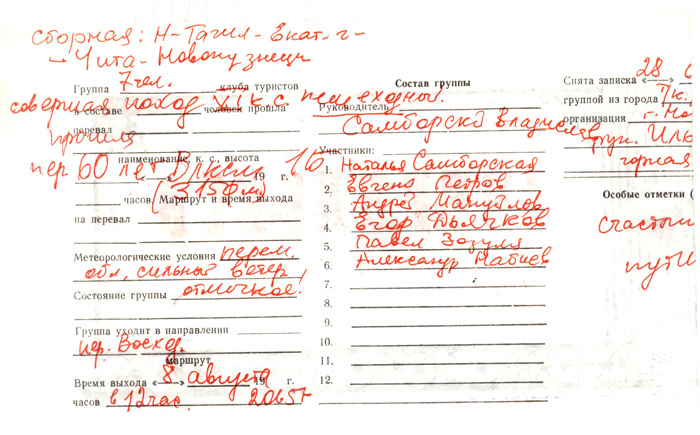 сборная: Н-Тагил-Екат-г-
- Чита-Новокузнецк
Группа 7 чел. клуба туристов
совершая поход VI к.с. пешеходный.
в составе человек прошла
перевал прошла
пер. 60 лет Влксм
наименование, к. с., высота
« » 19 г. 16
(3150 м)
часов Маршрут и время выхода
на перевал
Метеорологические условия перем.
обл, сильный ветер,
Состояние группы отличное!
Группа уходит в направлении
пер. Восход.
маршрут
Время выхода « 8 » августа 19 г.
часов в 12 час. 2015 г
Состав группы
Руководитель
Самборский Владислав
Участники:
1. Наталья Самборская
2. Евгений Петров
3. Андрей Мануйлов
4. Егор Дьячков
5. Павел Зозуля
6. Александр Набиев
7.
8.
9.
10.
11.
12.
Снята записка « 28 »
группой из города
организация
рук.
горная
Особые отметки (
счастли
пути